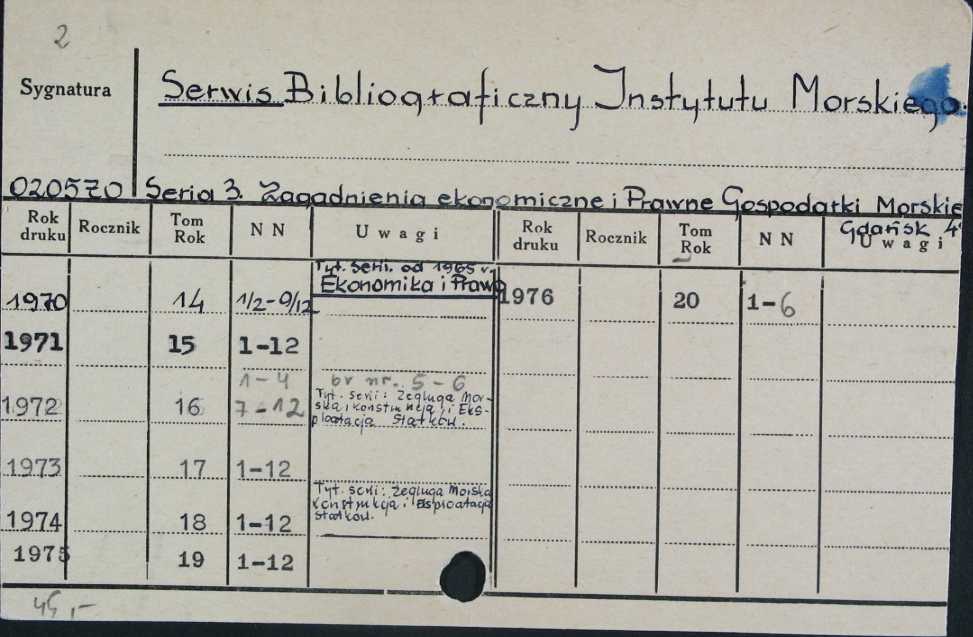 2
Sygnatura
Serwis Bibliograficzny Instytutu Morskiego.
020570 Seria 3. Zagadnienia ekonomiczne i Prawne Gospodarki Morskie
Gdańsk 4°
Rok druku Rocznik Tom Rok NN Uwagi Rok druku Rocznik Tom Rok NN Uwagi
Tyt. serii. od 1965 r.
Ekonomika i Prawo
1970 14 1/2-9/12 1976 20 1-6
1971 15 1-12
1-4 br nr. 5-6
1972 16 7-12 Tyt. serii: Żegluga Mor-
ska, konstrukcja i Eks-
ploatacja Statków.
1973 17 1-12
Tyt. serii: Żegluga Morska
Konstrukcja i Eksploatacja
Statków.
1974 18 1-12
1975 19 1-12
45,-